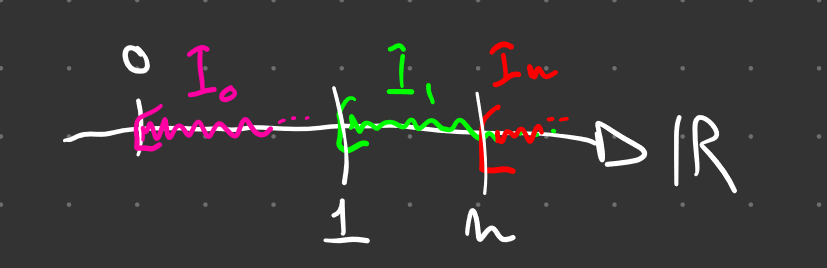 0 I₀ I₁ Iₙ
[ [ [ ℝ
1 n